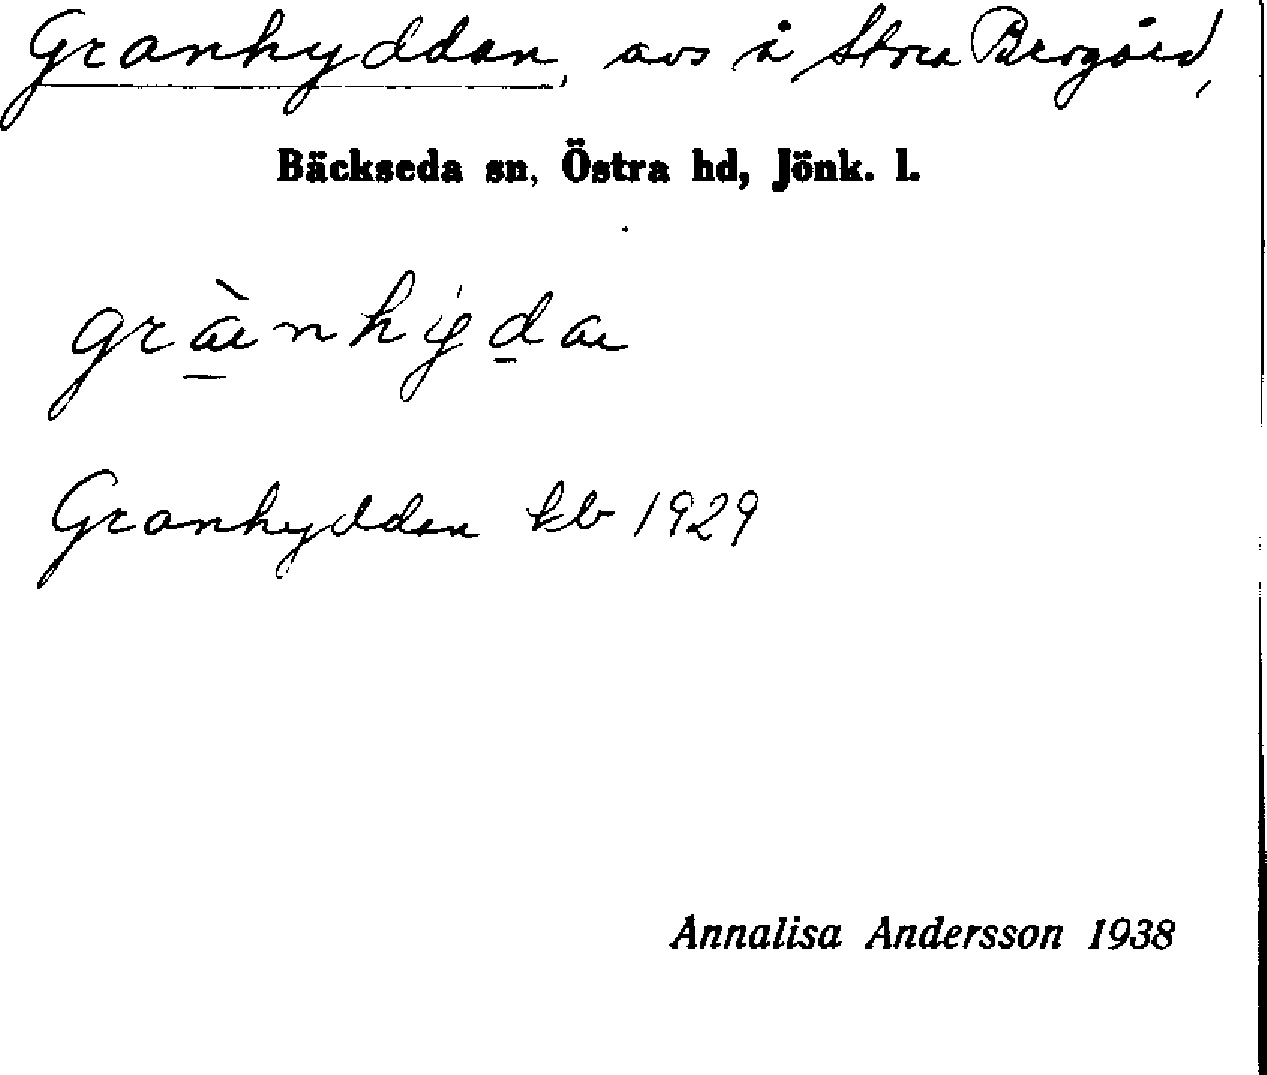 Granhyddan, avs å Stora Bergård,
Bäckseda sn, Östra hd, Jönk. l.
Granhyddan kb 1929
Annalisa Andersson 1938